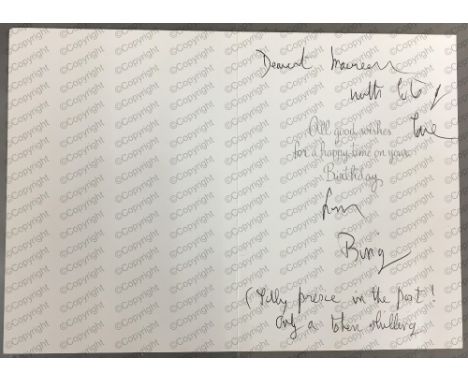 Dearest Maureen
with lots of
love
All good wishes
for a happy time on your
Birthday
from
Bing
in the post!
only a token shilling
©Copyright